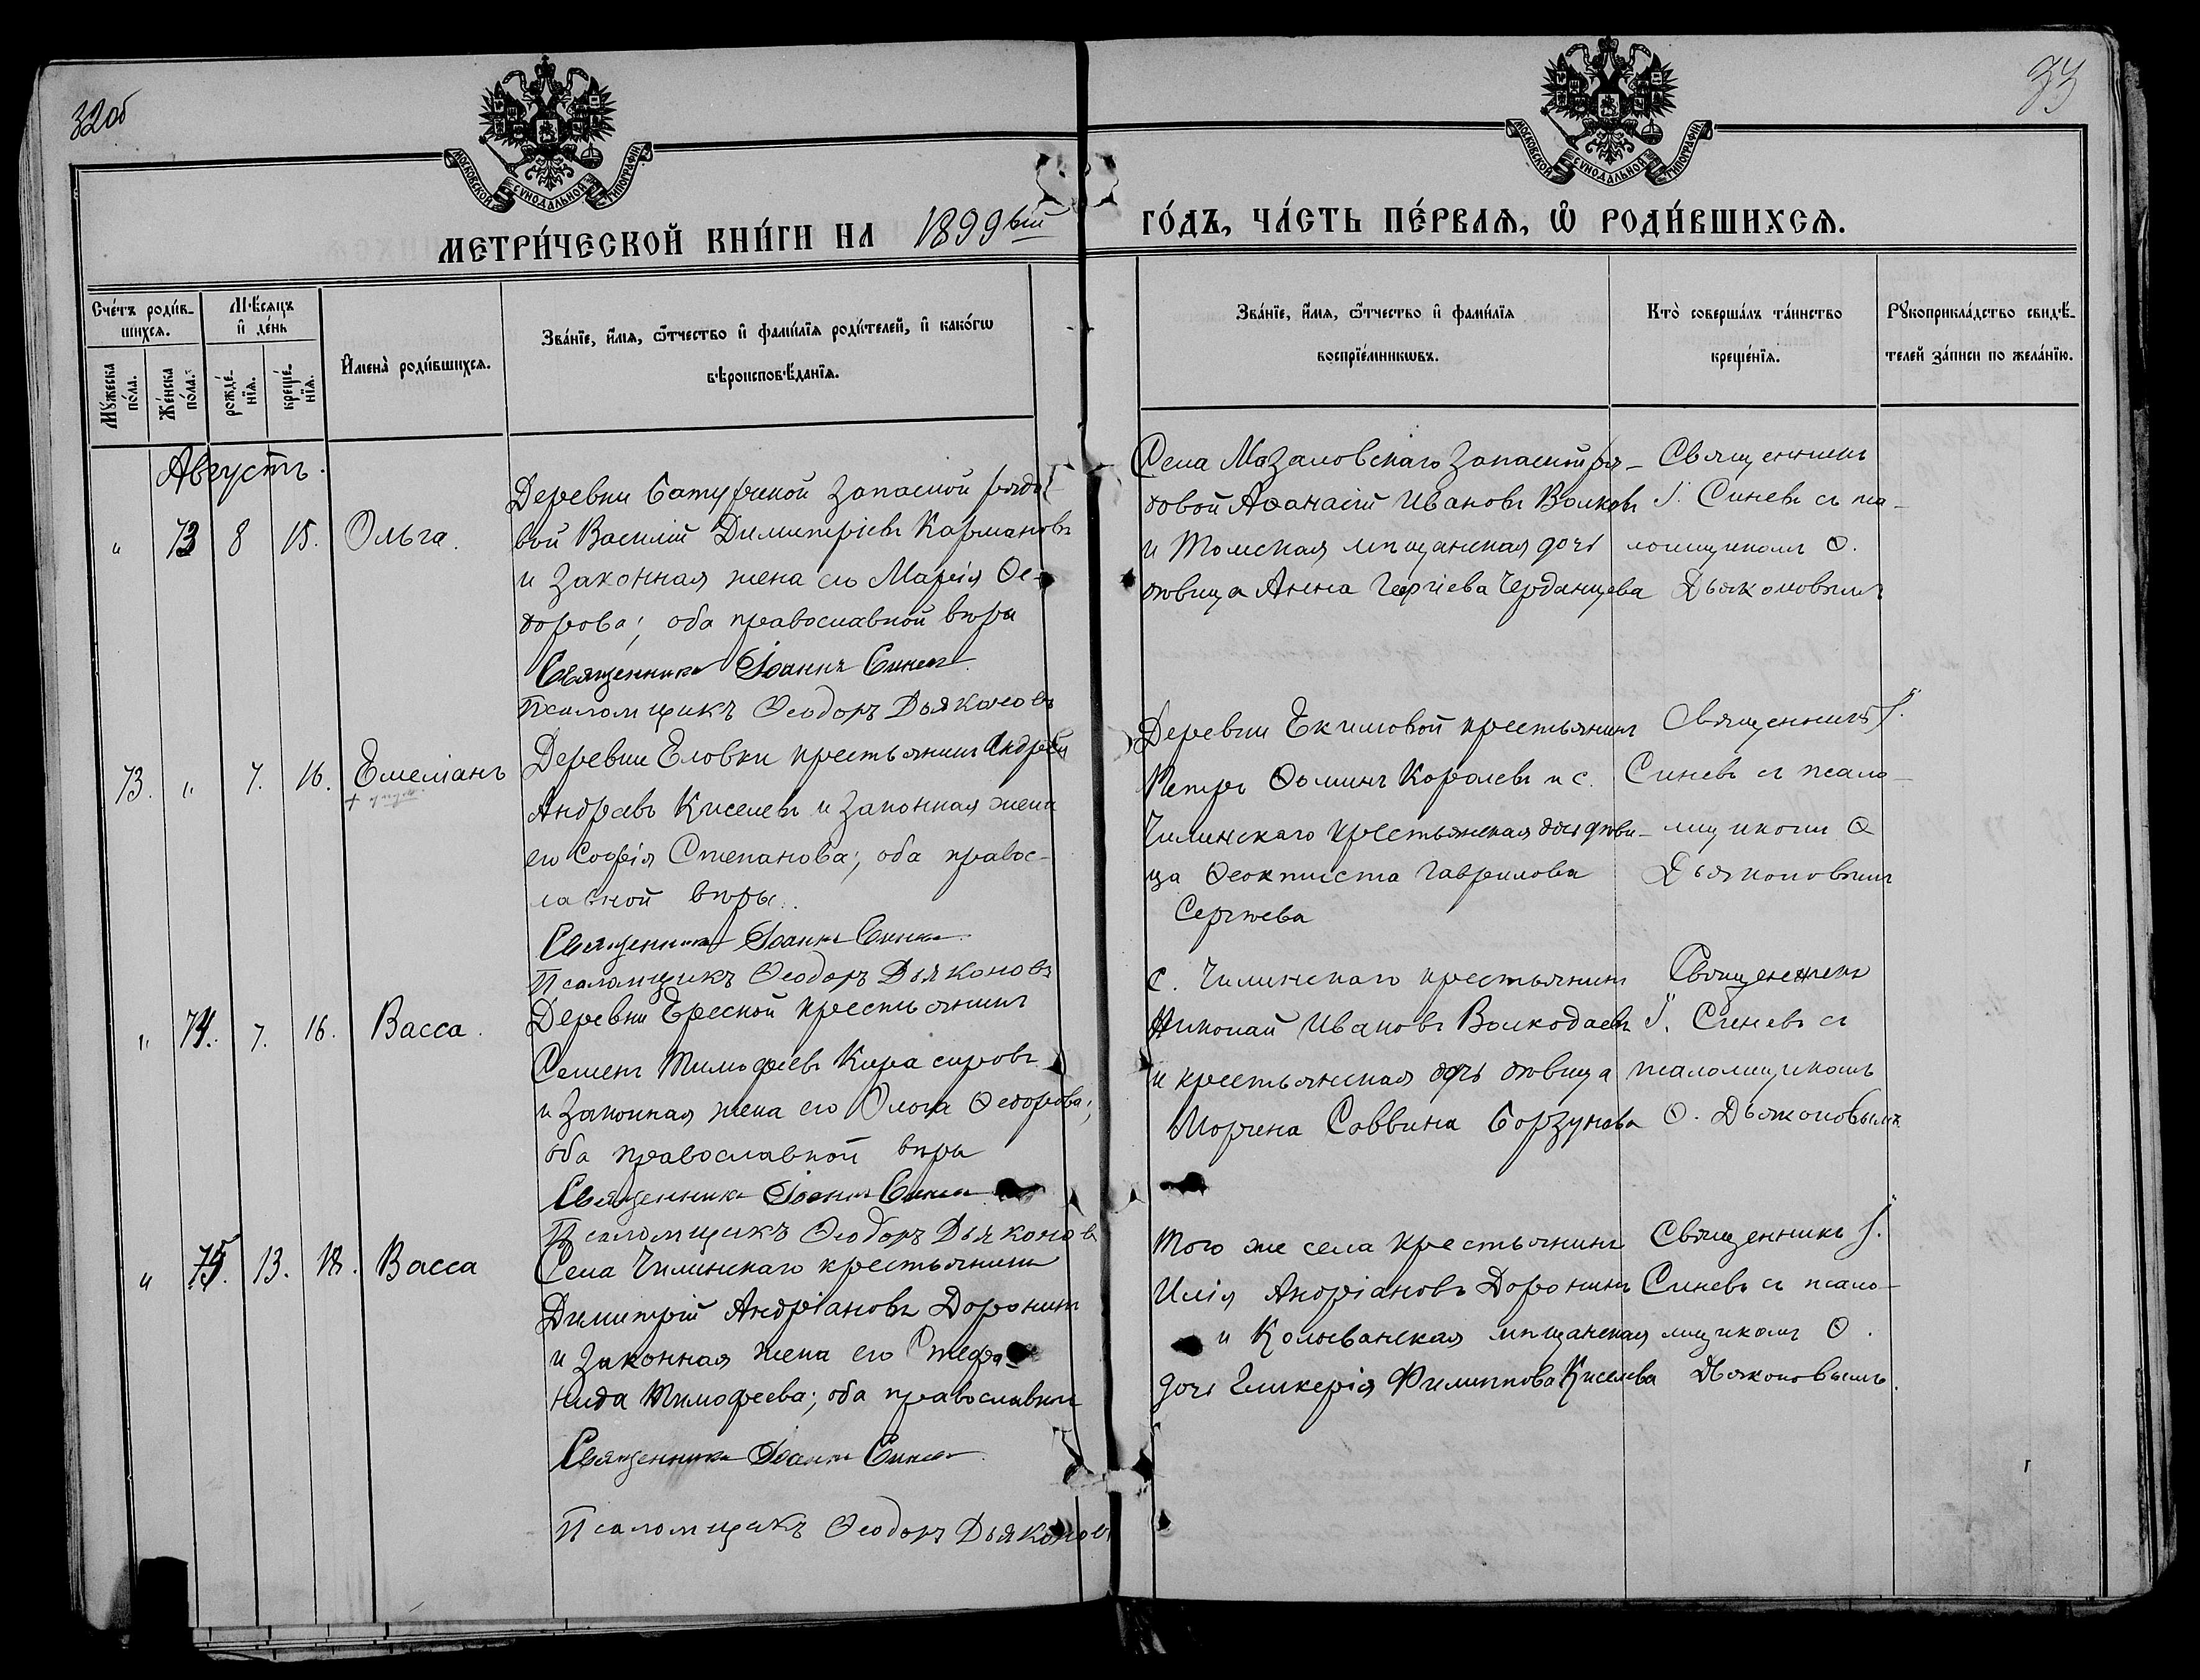 32об
33
МОСКОВСКОЙ СѴНОДАЛЬНОЙ ТИПОГРАФІИ
МОСКОВСКОЙ СѴНОДАЛЬНОЙ ТИПОГРАФІИ
МЕТРИ́ЧЕСКОЙ КНИ́ГИ НА 1899ый ГО́ДЪ, ЧА́СТЬ ПЕ́РВАѦ, Ѡ҆ РОДИ́ВШИХСѦ.
Сче́тъ роди́в-
шихсѧ.
Мꙋ́жеска по́ла.
Же́нска по́ла.
Мѣ́сѧцъ
и҆ де́нь
рожде́-
нїѧ.
креще́-
нїѧ.
И҆мена̀ роди́вшихсѧ.
Зва́нїе, и҆́мѧ, ѻ҆́тчество и҆ фами́лїѧ роди́телей, и҆ како́гѡ
вѣроисповѣ́данїѧ.
Зва́нїе, и҆́мѧ, ѻ҆́тчество и҆ фами́лїѧ
воспрїе́мникѡвъ.
Кто̀ соверша́лъ та́инство
креще́нїѧ.
Рꙋкоприкла́дство свидѣ́-
телей за́писи по жела́нїю.
Августъ.
" 73 8 15. Ольга.
Деревни Батуриной запасной рядо-
вой Василій Димитріевъ Кармановъ
и законная жена его Марія Ѳе-
дорова; оба православной вѣры
Священникъ Іоаннъ Синевъ
Псаломщикъ Ѳеодоръ Дьяконовъ
Села Мазаловскаго запасной ря-
довой Аѳанасій Ивановъ Волковъ
и Томская мѣщанская дочь
дѣвица Анна Георгіева Черданцева
Священникъ
І. Синевъ съ пса-
ломщикомъ Ѳ.
Дьяконовымъ
73. " 7. 16. Емеліанъ
Деревни Еловки крестьянинъ Андрей
Андреевъ Киселевъ и законная жена
его Софія Степанова; оба правос-
лавной вѣры.
Священникъ Іоаннъ Синевъ
Псаломщикъ Ѳеодоръ Дьяконовъ
Деревни Екимовой крестьянинъ
Петръ Ѳоминъ Королевъ и с.
Чилинскаго крестьянская дочь дѣви-
ца Ѳеоктиста Гаврилова
Сергѣева
Священникъ І.
Синевъ съ псало-
мщикомъ Ѳ
Дьяконовымъ
" 74. 7. 16. Васса.
Деревни Ересной крестьянинъ
Семенъ Тимофеевъ Кирасировъ
и законная жена его Ольга Ѳедорова;
оба православной вѣры
Священникъ Іоаннъ Синевъ
Псаломщикъ Ѳеодоръ Дьяконовъ
с. Чилинскаго крестьянинъ
Николай Ивановъ Волкодаевъ
и крестьянская дочь дѣвица
Морина Саввина Борзунова
Священникъ
І. Синевъ съ
псаломщикомъ
Ѳ. Дьяконовымъ
" 75. 13. 18. Васса
Села Чилинскаго крестьянинъ
Димитрій Андріановъ Доронинъ
и законная жена его Стефа-
нида Тимофеева; оба православной
Священникъ Іоаннъ Синевъ
Псаломщикъ Ѳеодоръ Дьяконовъ
Того же села крестьянинъ
Илія Андріановъ Доронинъ
и Колыванская мѣщанская
дочь Гликерія Филиппова Киселева
Священникъ І.
Синевъ съ псало-
мщикомъ Ѳ.
Дьяконовымъ.